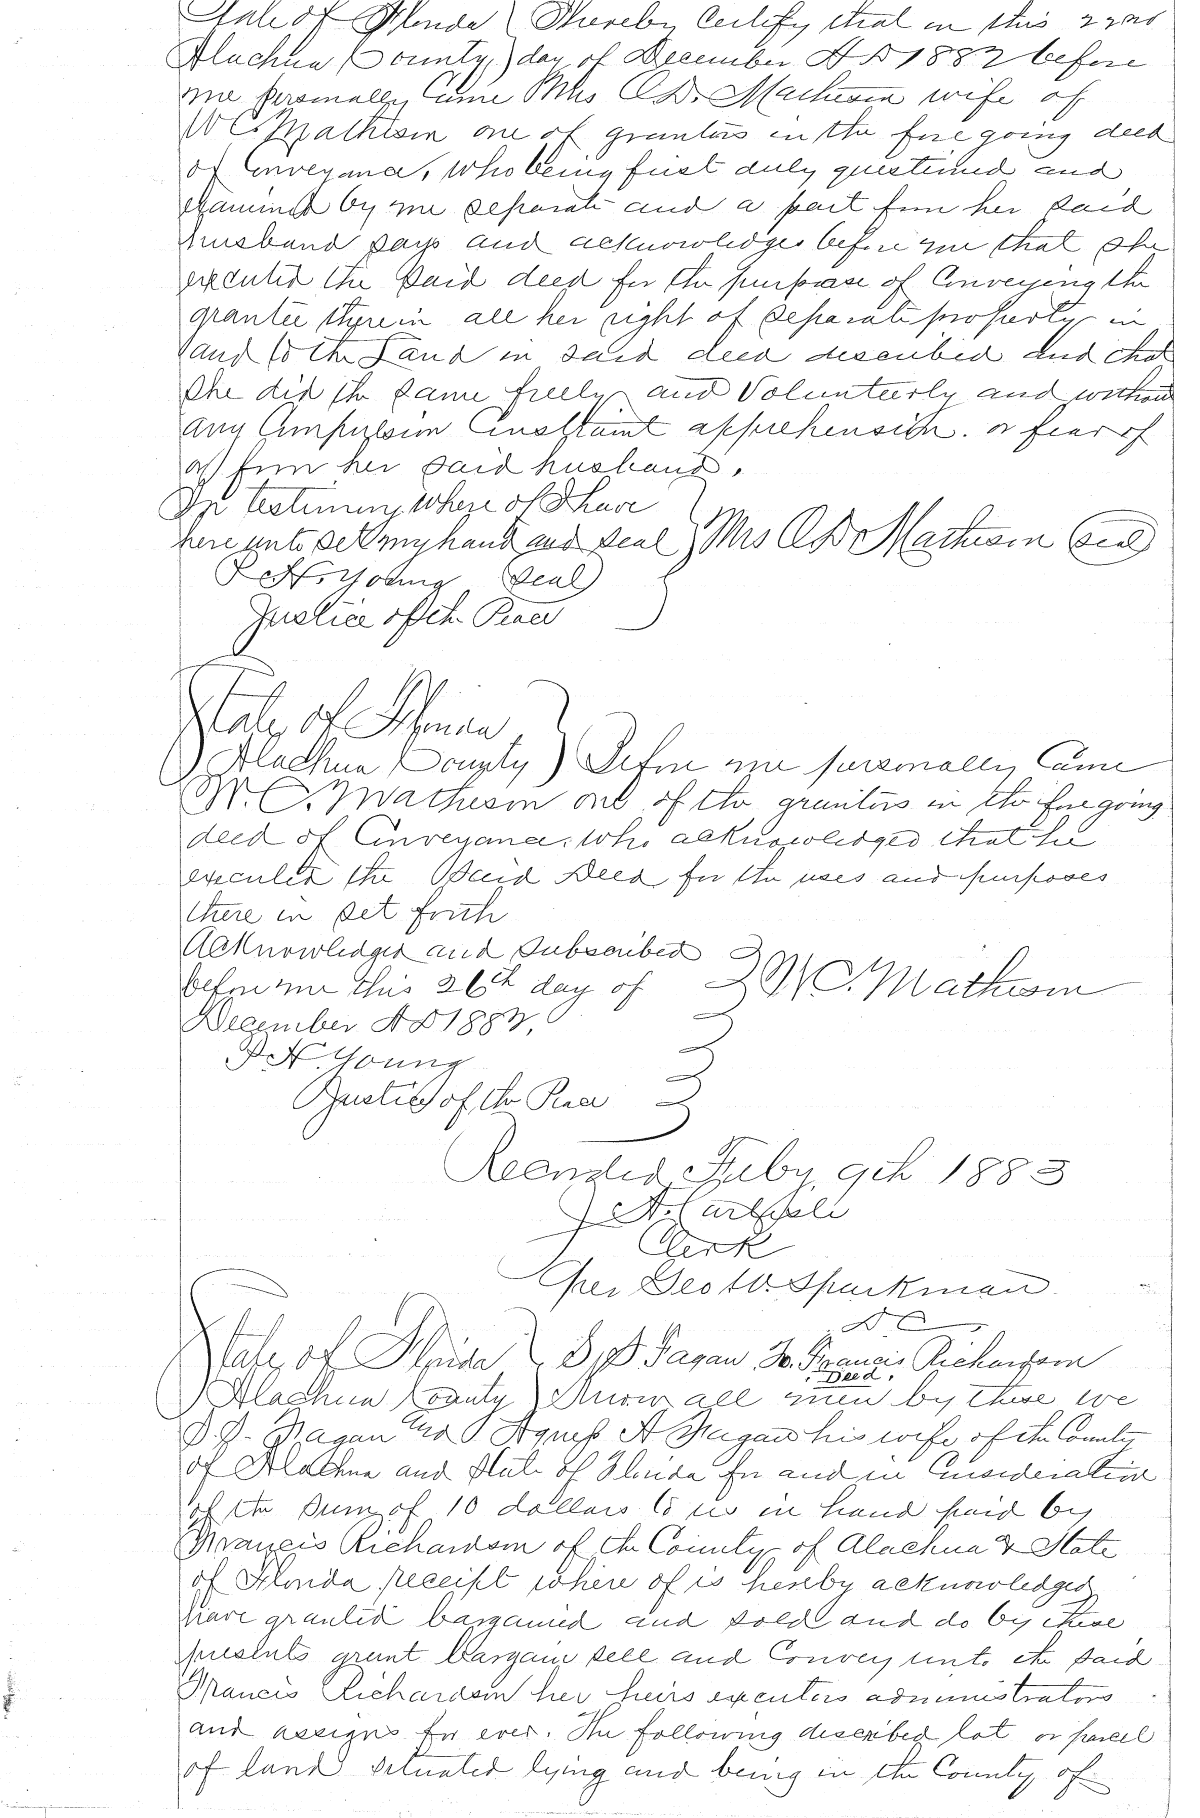 State of Florida } I hereby Certify that on this 22nd
Alachua County } day of December A D 1882 before
me personally Came Mrs A D. Matheson wife of
W C. Matheson one of grantors in the fore going deed
of Conveyance, who being first duly questioned and
examined by me separate and a part from her said
husband says and acknowledges before me that she
executed the said deed for the purpose of Conveying the
grantee therein all her right of separate property in
and to the Land in said deed described and that
she did the same freely and Volunteerly and without
any Compulsion Constraint apprehension. or fear of
or from her said husband.
In testimony where of I have
here unto set my hand and seal } Mrs A D Matheson (seal)
P H. Young (seal)
Justice of th Peace
State of Florida }
Alachua County } Before me personally Came
W. C. Matheson one of the grantors in the fore going
deed of Conveyance. who acknowledged that he
executed the Said Deed for the uses and purposes
there in set forth
Acknowledged and Subscribed
before me this 26th day of } W C. Matheson
December A D 1882.
P H. Young
Justice of the Peace
Recorded Feby, 9th 1883
J A. Carlisle
Clerk
per Geo W. Sparkman
D C
State of Florida } Fagan To. Francis Richardson
Deed.
Alachua County } Know all men by these we
Fagan and Agness A Fagan his wife of the County
of Alachua and State of Florida for and in Consideration
of the Sum of 10 dollars to us in hand paid by
Francis Richardson of the County of Alachua & State
of Florida receipt where of is hereby acknowledged
have granted bargained and sold and do by these
presents grant bargain sell and Convey unto the said
Francis Richardson her heirs executors administrators
and assigns for ever. The following described lot or parcel
of land situated lying and being in the County of